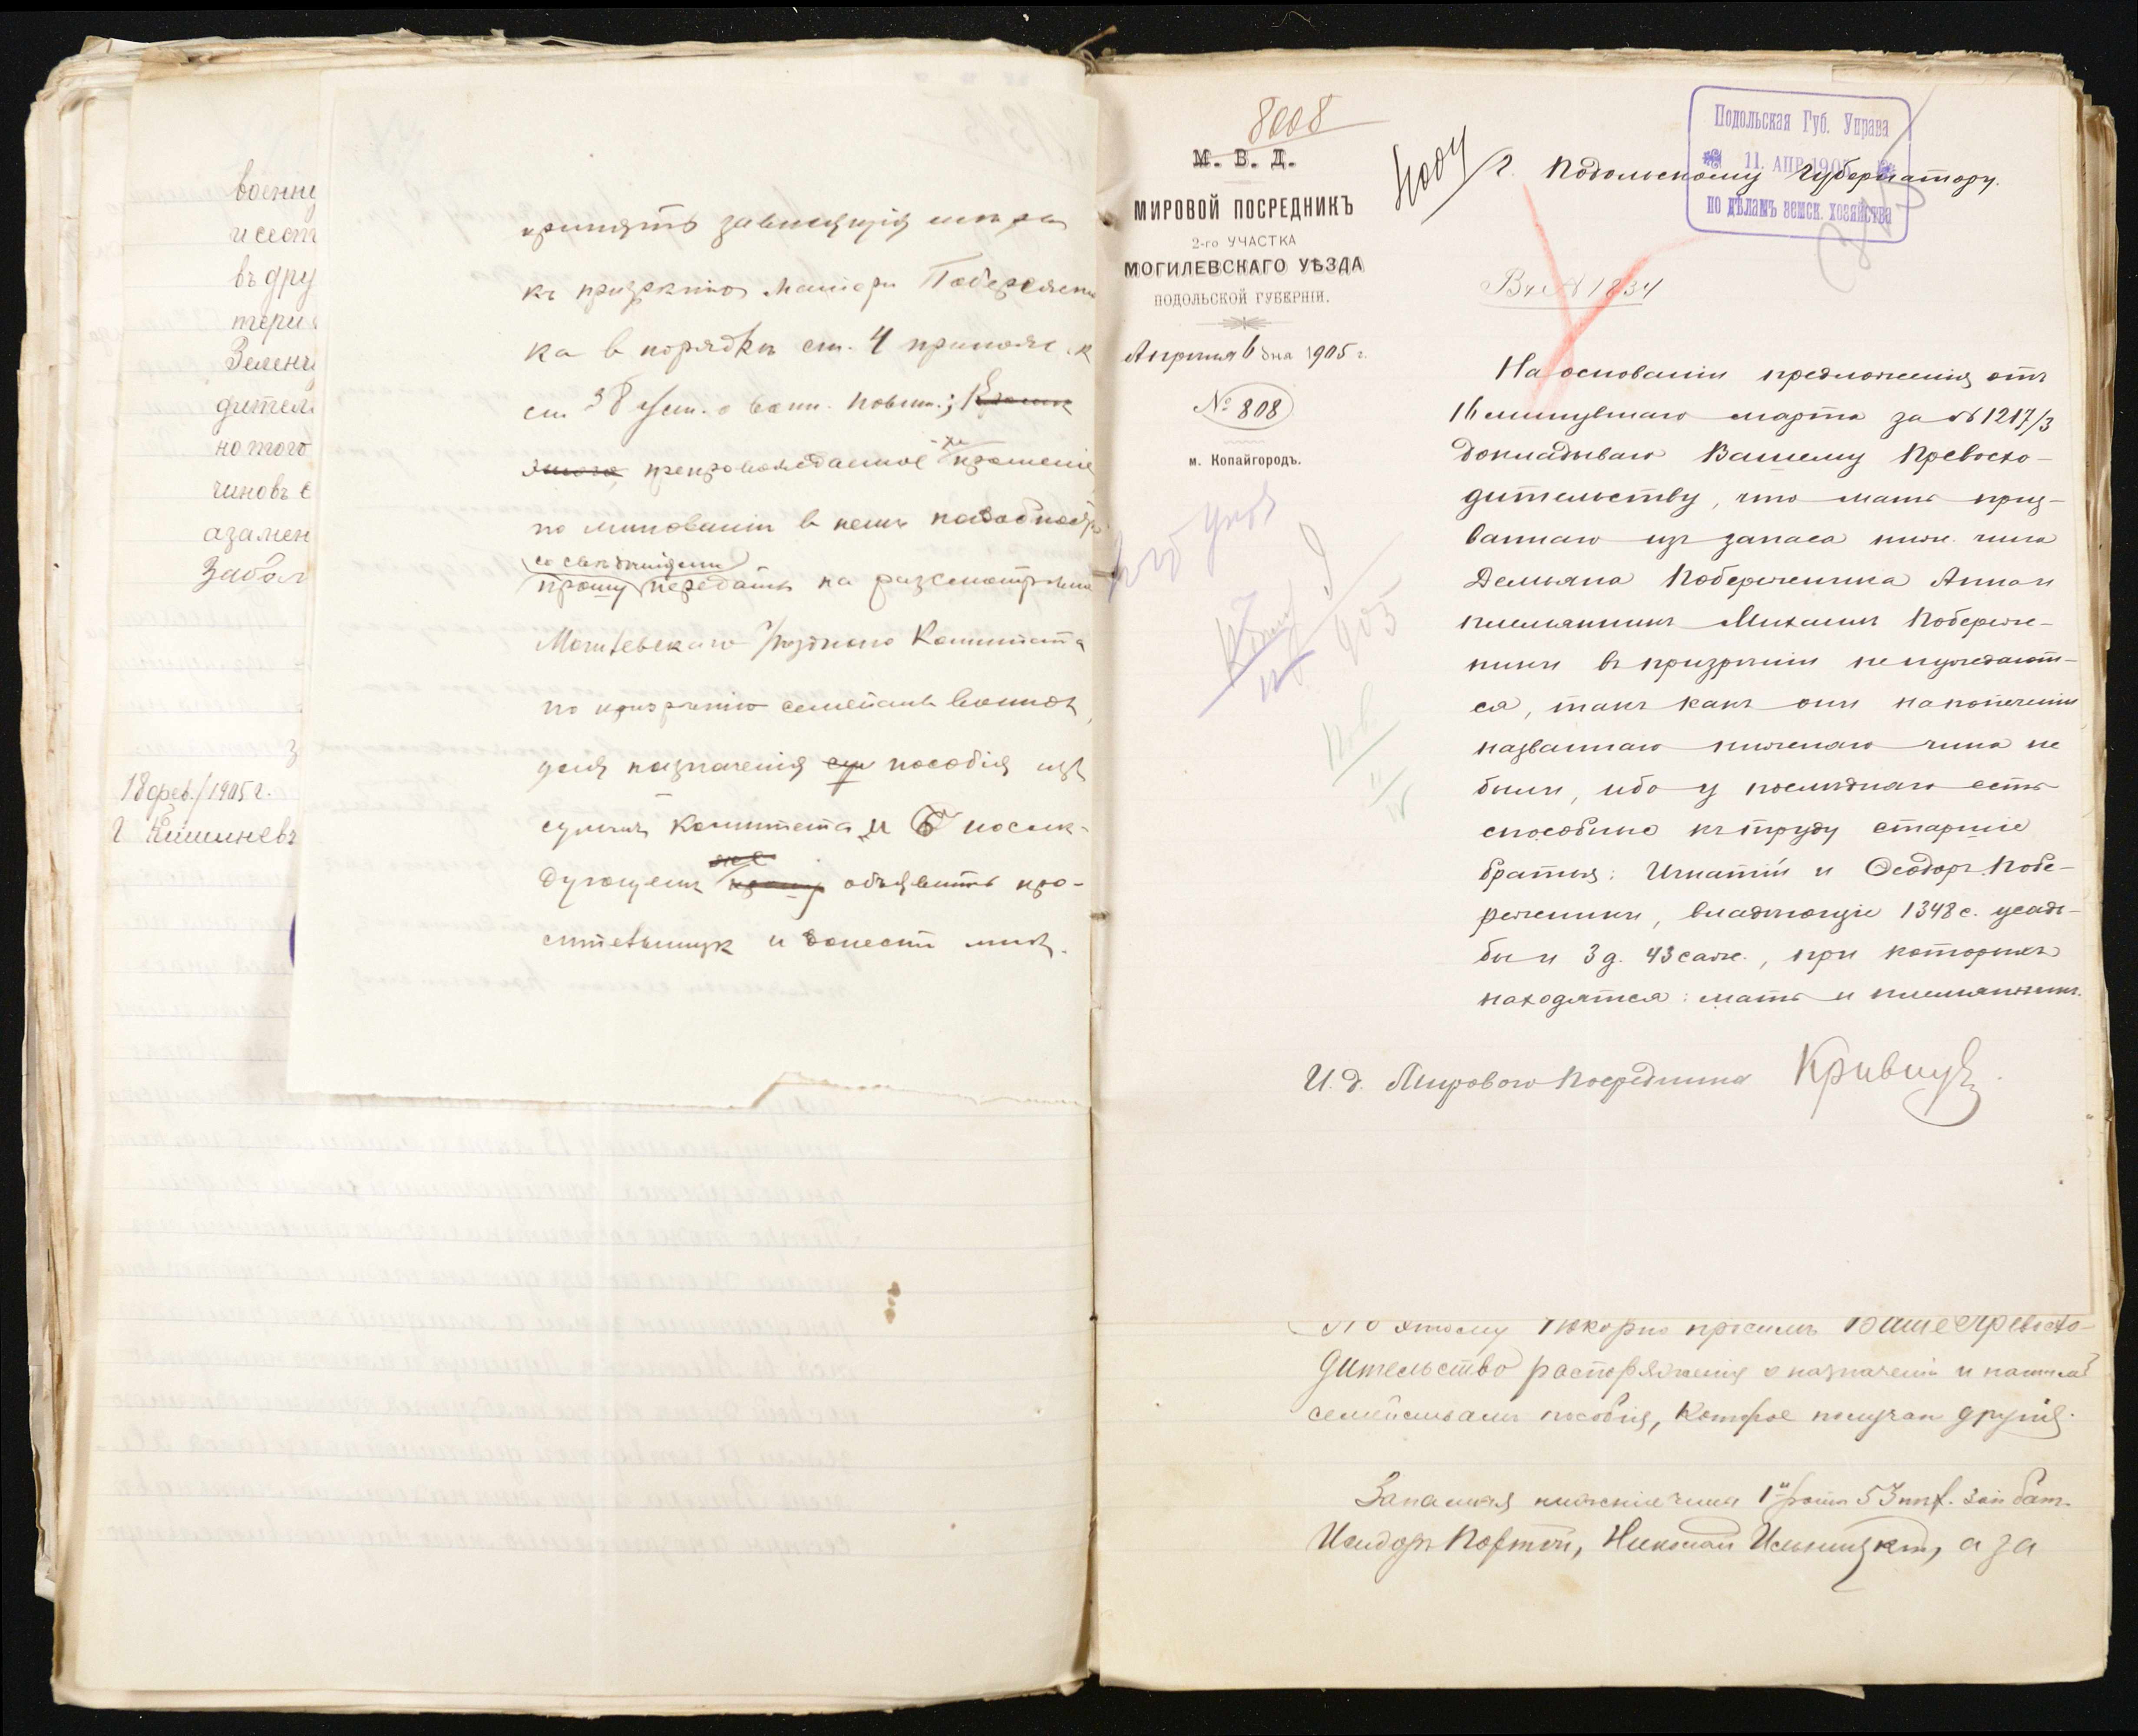 военну
и сест
въ дру
тери
Зелен
дител
но того
чиновъ с
азамен
Забол
18 фев./1905 г.
Г. Кишиневъ
принять зависящія мѣры
къ призрѣнію матери Побережни
ка в порядкѣ ст. 4 прилож. к
ст. 38 Уст. о воин. повин.;
препровождаемое же прошеніе
по минованіи в немъ надобности
со свѣдѣніями
прошу передать на разсмотрѣніе
Могилевскаго Уѣзднаго Комитета
по призрѣнію семействъ воиновъ,
для назначенія пособія изъ
суммъ Комитета и о послѣ-
дующемъ объявить про-
сительницѣ и донести мнѣ.
8008
М. В. Д.
МИРОВОЙ ПОСРЕДНИКЪ
2-го УЧАСТКА
МОГИЛЕВСКАГО УѢЗДА
ПОДОЛЬСКОЙ ГУБЕРНІИ.
Апрѣля 6 дня 1905 г.
№ 808
м. Копайгородъ.
Подольская Губ. Управа
11. АПР 1905
по дѣламъ земск. хозяйства
Г. Подольскому Губернатору.
1834
На основаніи предложенія отъ
16 минувшаго марта за № 1217/3
докладываю Вашему Превосхо-
дительству, что мать приз-
ваннаго изъ запаса нижн. чина
Демьяна Побережника Анна и
племянникъ Михаилъ Побереж-
ники въ призрѣніи не нуждают-
ся, такъ какъ они на попеченіи
названнаго нижняго чина не
были, ибо у послѣдняго есть
способные къ труду старшіе
братья: Игнатій и Ѳеодоръ Побе-
режники, владѣющіе 1348 с. усадь-
бы и 3 д. 43 саж., при которыхъ
находятся: мать и племянникъ.
И. д. Мирового Посредника
По этому покорно просимъ Ваше Превосхо-
дительство распоряженія о назначеніи
семействамъ пособія, которое получаю другія.
Запасныя нижніе чина 1й роты 53 пѣх. зап. бат.
Исидоръ Портой, Николай Ильницкій, а за